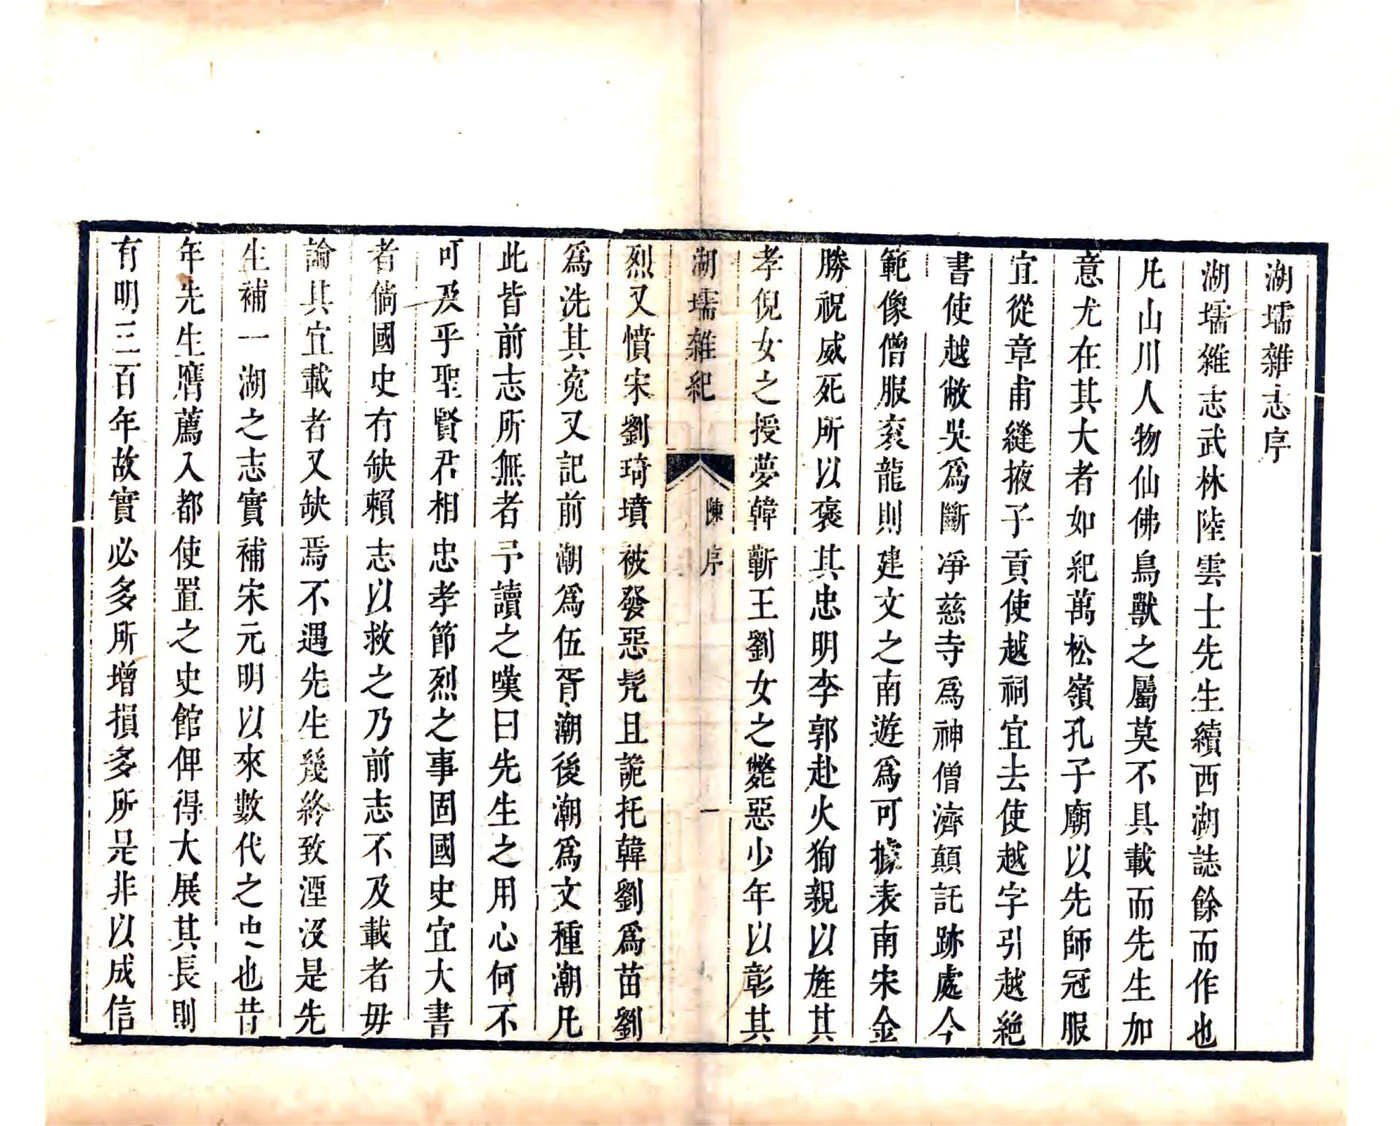 湖壖雜志序
湖壖雜志武林陸雲士先生續西湖誌餘而作也
凡山川人物仙佛鳥獸之屬莫不具載而先生加
意尤在其大者如紀萬松嶺孔子廟以先師冠服
宜從章甫縫掖子貢使越祠宜去使越字引越絕
書使越敝吳爲斷凈慈寺爲神僧濟顛託跡處今
範像僧服衮龍則建文之南遊爲可據表南宋金
勝祝威死所以褒其忠明李郭赴火狥親以旌其
孝倪女之授夢韓蘄王劉女之斃惡少年以彰其
湖壖雜紀
陳序
一
烈又憤宋劉琦墳被發惡髡且詭托韓劉爲苗劉
爲洗其寃又記前潮爲伍胥潮後潮爲文種潮凡
此皆前志所無者予讀之嘆曰先生之用心何不
可及乎聖賢君相忠孝節烈之事固國史宜大書
者倘國史有缺賴志以救之乃前志不及載者毋
論其宜載者又缺焉不遇先生幾終致湮沒是先
生補一湖之志實補宋元明以來數代之史也昔
年先生膺薦入都使置之史館俾得大展其長則
有明三百年故實必多所增損多所是非以成信